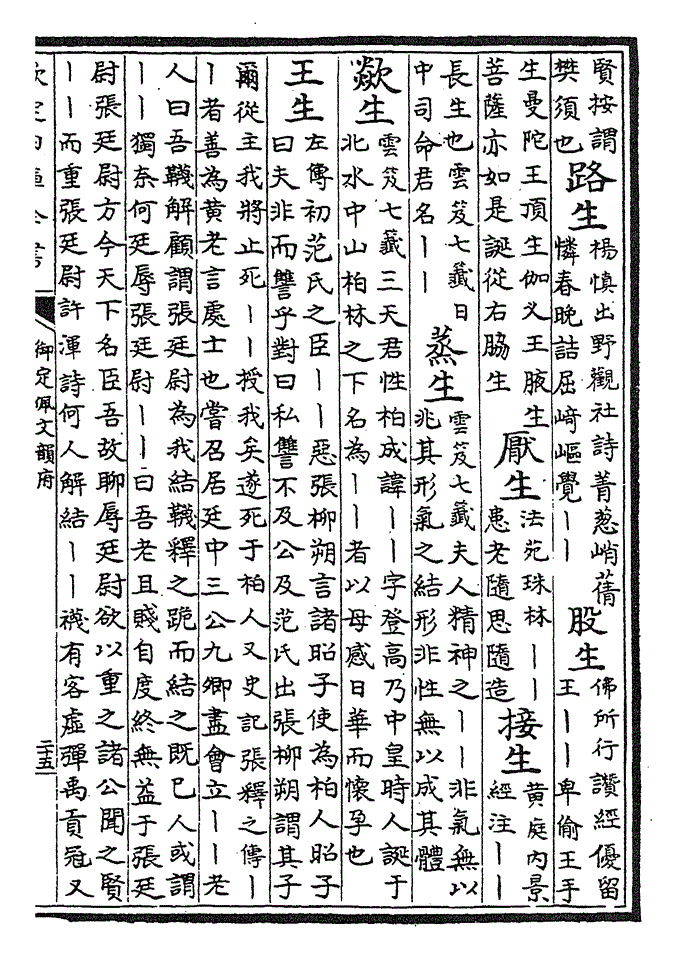 賢按謂
樊須也
路生
楊慎出野觀社詩菁蔥峭蒨
憐春晚詰屈﨑嶇覺｜｜
股生
佛所行讚經優留
王｜｜卑偷王手
生曼陀王頂生伽义王腋生
菩薩亦如是誕從右脇生
厭生
法苑珠林｜｜
患老隨思隨造
接生
黄庭内景
經注｜｜
長生也雲笈七籤日
中司命君名｜｜
蒸生
雲笈七籤夫人精神之｜｜非氣無以
兆其形氣之結形非性無以成其體
歘生
雲笈七籤三天君性柏成諱｜｜字登高乃中皇時人誕于
北水中山柏林之下名為｜｜者以母感日華而懷孕也
王生
左傳初范氏之臣｜｜惡張柳朔言諸昭子使為柏人昭子
曰夫非而讐乎對曰私讐不及公及范氏出張柳朔謂其子
爾從主我將止死｜｜授我矣遂死于柏人又史記張釋之傳｜
｜者善為黄老言處士也嘗召居廷中三公九卿盡會立｜｜老
人曰吾韤解顧謂張廷尉為我結韤釋之跪而結之既已人或謂
｜｜獨奈何廷辱張廷尉｜｜曰吾老且賤自度終無益于張廷
尉張廷尉方今天下名臣吾故聊辱廷尉欲以重之諸公聞之賢
｜｜而重張廷尉許渾詩何人解結｜｜襪有客虛彈禹貢冠又
欽定四庫全書
御定佩文韻府
二十五